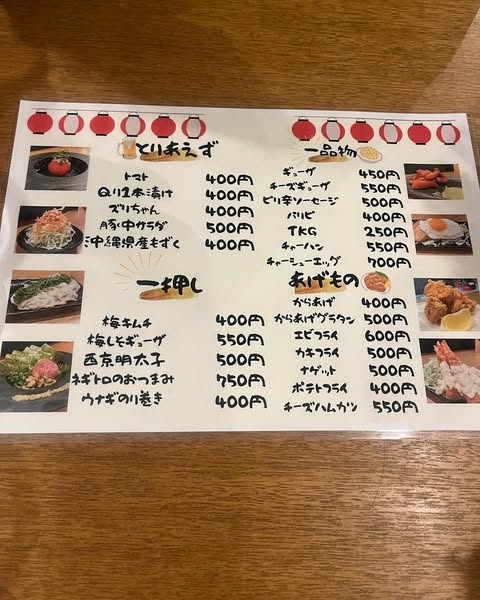 とりあえず
トマト 400円
Qり1本漬け 400円
ズリちゃん 400円
豚・中カラダ 500円
沖縄県産もずく 400円
一押し
梅キムチ 400円
梅しそギョーザ 550円
西京明太子 550円
ネギトロのおつまみ 750円
ウナギのり巻き 400円
一品物
ギョーザ 450円
チーズギョーザ 550円
ピリ辛ソーセージ 500円
パリピ 400円
TKG 250円
チャーハン 550円
チャーシューエッグ 700円
あげもの
からあげ 400円
からあげグラタン 500円
エビフライ 600円
カキフライ 500円
ナゲット 500円
ポテトフライ 400円
チーズハムカツ 550円